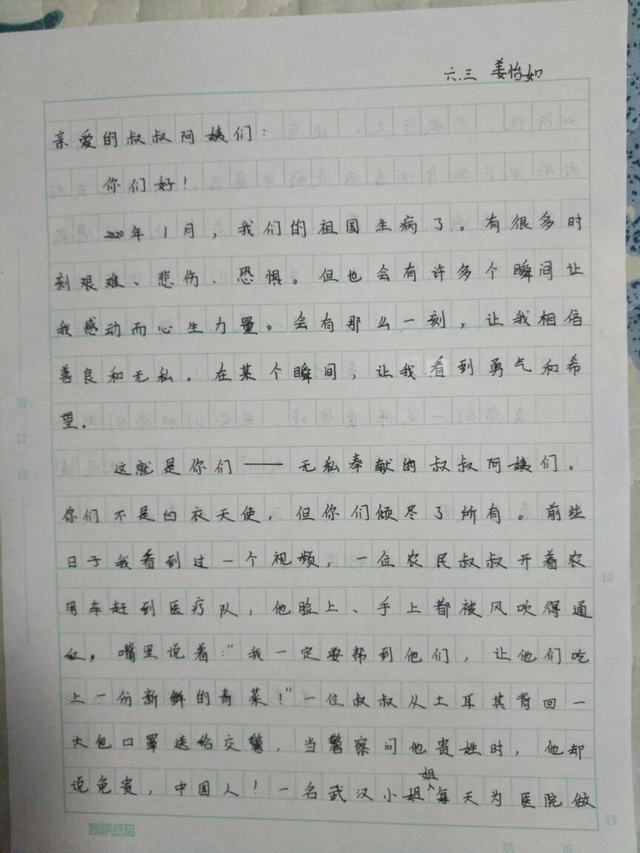 六.三 姜怡如
亲爱的叔叔阿姨们：
你们好！
2020年1月，我们的祖国生病了。有很多时
刻艰难、悲伤、恐惧。但也会有许多个瞬间让
我感动而心生力量。会有那么一刻，让我相信
善良和无私。在某个瞬间，让我看到勇气和希
望。
这就是你们——无私奉献的叔叔阿姨们。
你们不是白衣天使，但你们倾尽了所有。前些
日子我看到过一个视频，一位农民叔叔开着农
用车赶到医疗队，他脸上、手上都被风吹得通
红，嘴里说着：“我一定要帮到他们，让他们吃
上一份新鲜的青菜！”一位叔叔从土耳其背回一
大包口罩送给交警，当警察问他贵姓时，他却
说免贵，中国人！一名武汉小姐姐每天为医院做
5
10
15
装
订
线
第 页